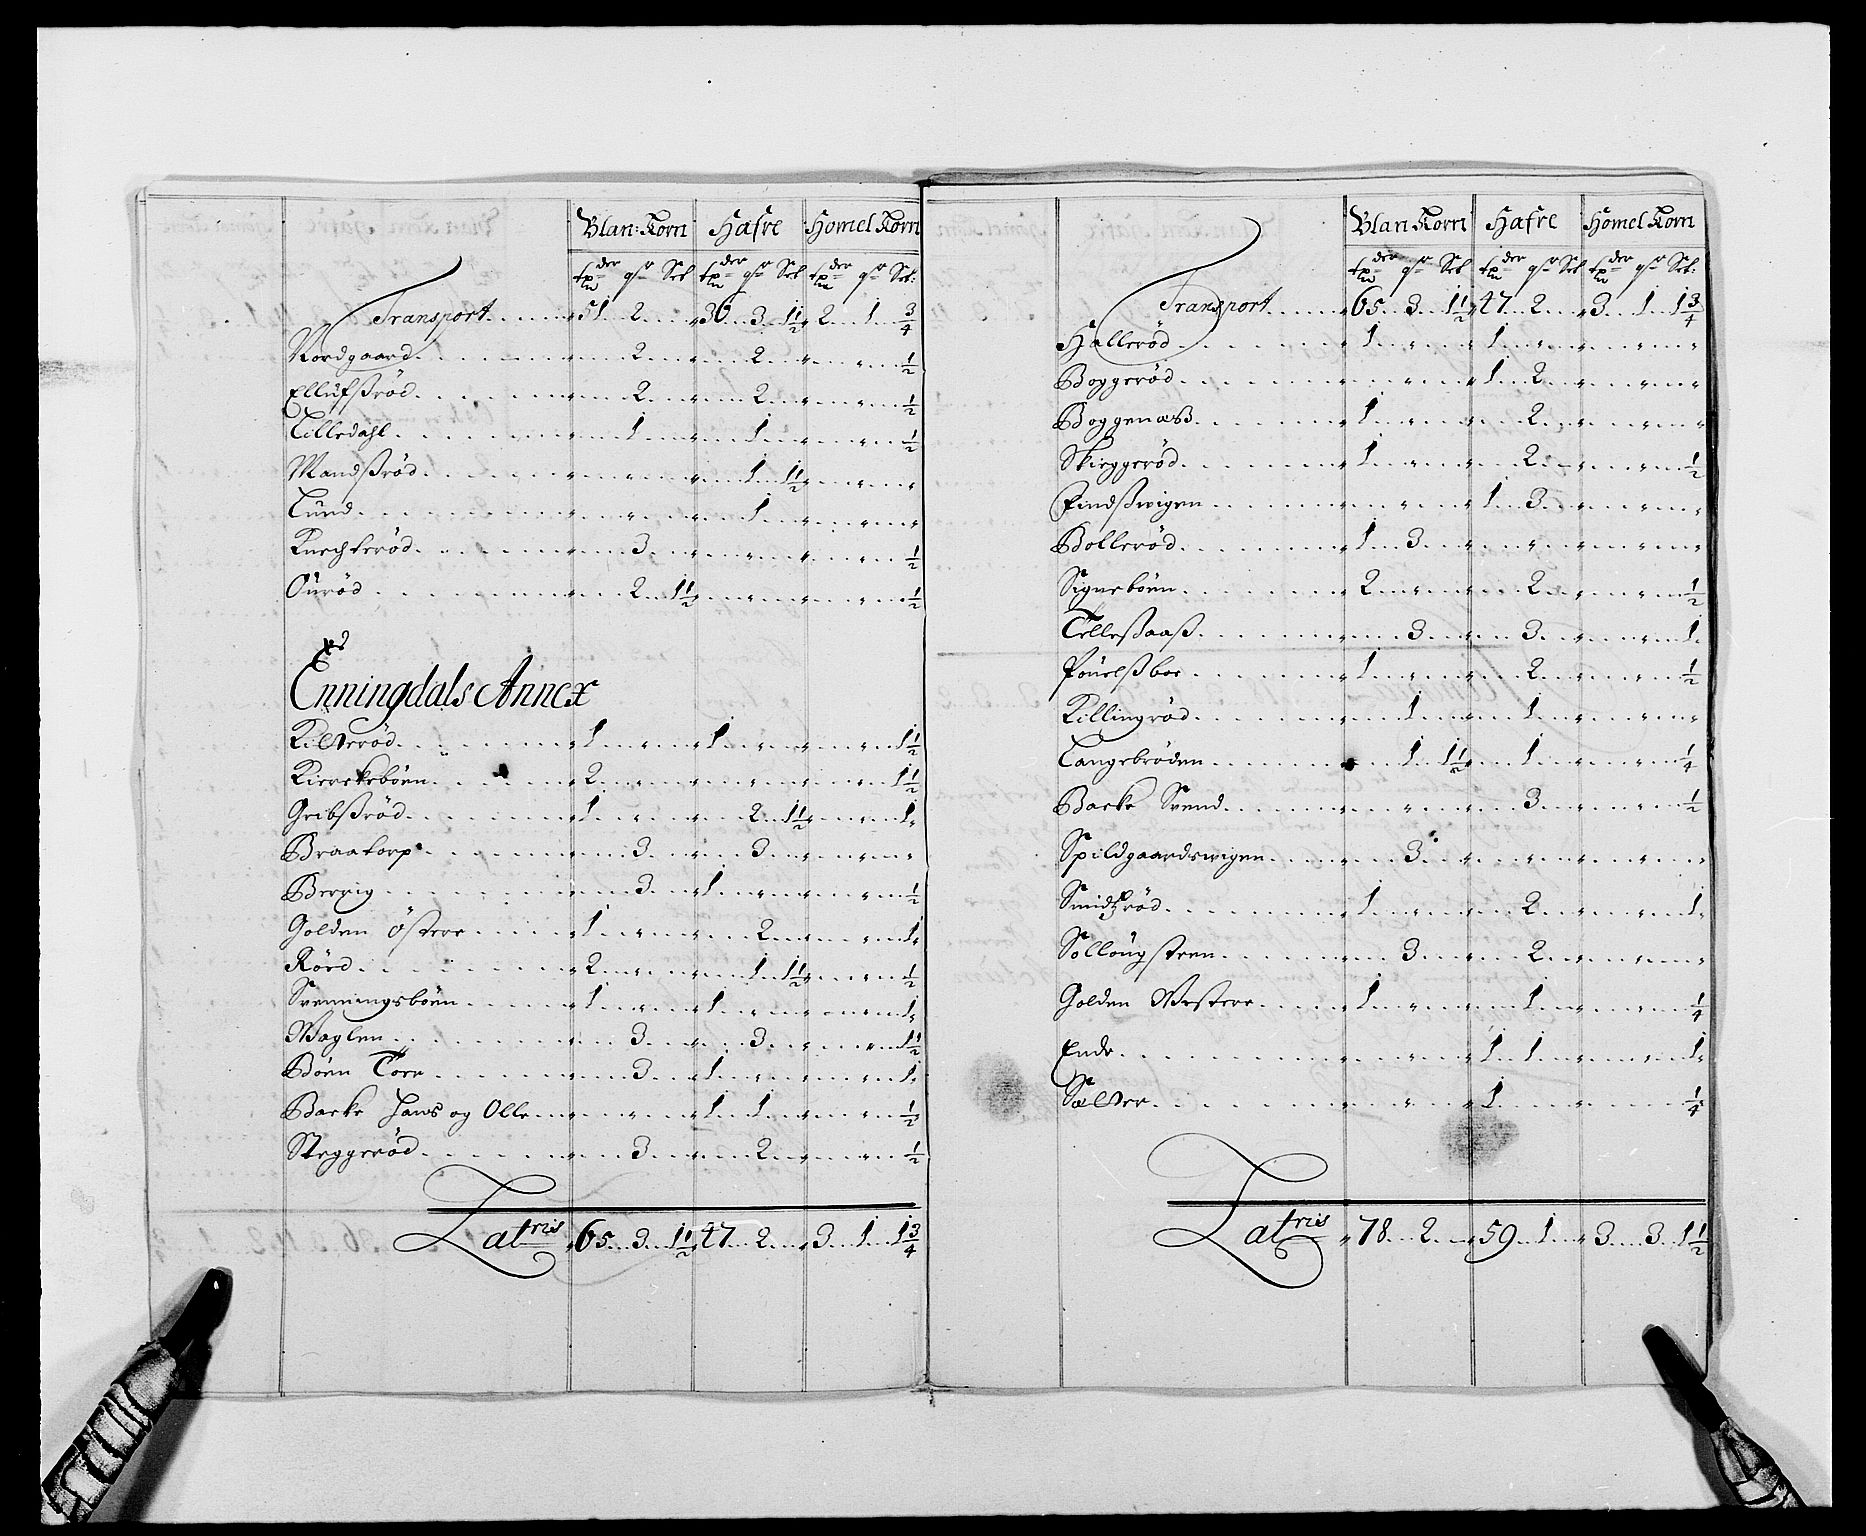 Blan: Korn Hafre Homel Korn
tøn der qr Sck tøn der qr Sck tøn der qr Sck:
Transport 51 2 " 36 3 1½ 2 1 ¾
Nordgaard " 2 " " 2 " " " ½
Ellufsrød " 2 " " 2 " " " ½
Lilledahl " 1 " " 1 " " " ½
Mandsrød " " " " 1 1½ " " "
Lund " " " " 1 " " " "
Knechterød " 3 " " " " " " ½
Ourød " 2 1½ " " " " " ½
Enningdals Annex
Kilterød 1 " " 1 " " " " 1½
Kierrebøen 2 " " " " " " " 1½
Gribsrød 1 " " " 2 1½ " " 1
Braatorp " 3 " " 3 " " " "
Berrig " 3 " 1 " " " " ½
Golden Østere 1 " " " 2 " " " 1
Rørd 2 " " " 1 1½ " " ½
Svenningsbøen 1 " " 1 " " " " 1
Waglen " 3 " " 3 " " " 1½
Bøen Tore " 3 " 1 " " " " 1
Backe Hans og Olle " " " 1 1 " " " ½
Steggerød " 3 " " 2 " " " ½
Latris 65 3 1½ 47 2 " 3 1 1¾
Blan Korn Hafre Homel Korn
tøn der qr Sck tøn der qr Sck tøn der qr Sck:
Transport 65 3 1½ 47 2 " 3 1 1¾
Hallerød 1 " " 1 " " " " "
Boggerød " " " 1 2 " " " "
Boggenæss 1 " " " 2 " " " "
Skieggerød 1 " " " 2 " " " ½
Findsswigen " " " 1 3 " " " "
Bollerød 1 3 " " " " " " "
Signebøen 2 " " " 2 " " " ½
Tellessaass " 3 " " 3 " " " 1
Pouelssboe 1 " " " 2 " " " ½
Killingrød " 1 " " 1 " " " "
Langebrøden " 1 1½ " 1 " " " ¼
Backe Svend " " " " 3 " " " ½
Spildgaardswigen " 3 " " " " " " "
Smidtzrød 1 " " " 2 " " " 1
Sollougsteen " 3 " " 2 " " " "
Golden Westere 1 " " " 1 " " " ¼
Ende " " " 1 1 " " " 1
Sælter " " " 1 " " " " ¼
Latris 78 2 " 59 1 " 3 3 1½